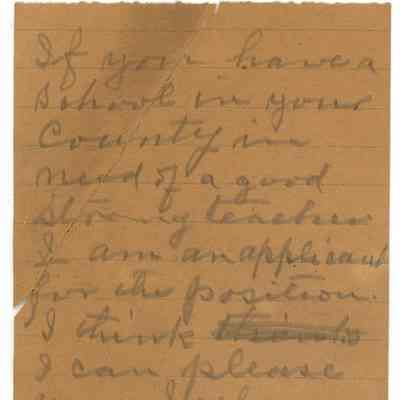 If you have a
school in your
County in
need of a good
strong teacher
I am an applicant
for the position.
I think
I can please